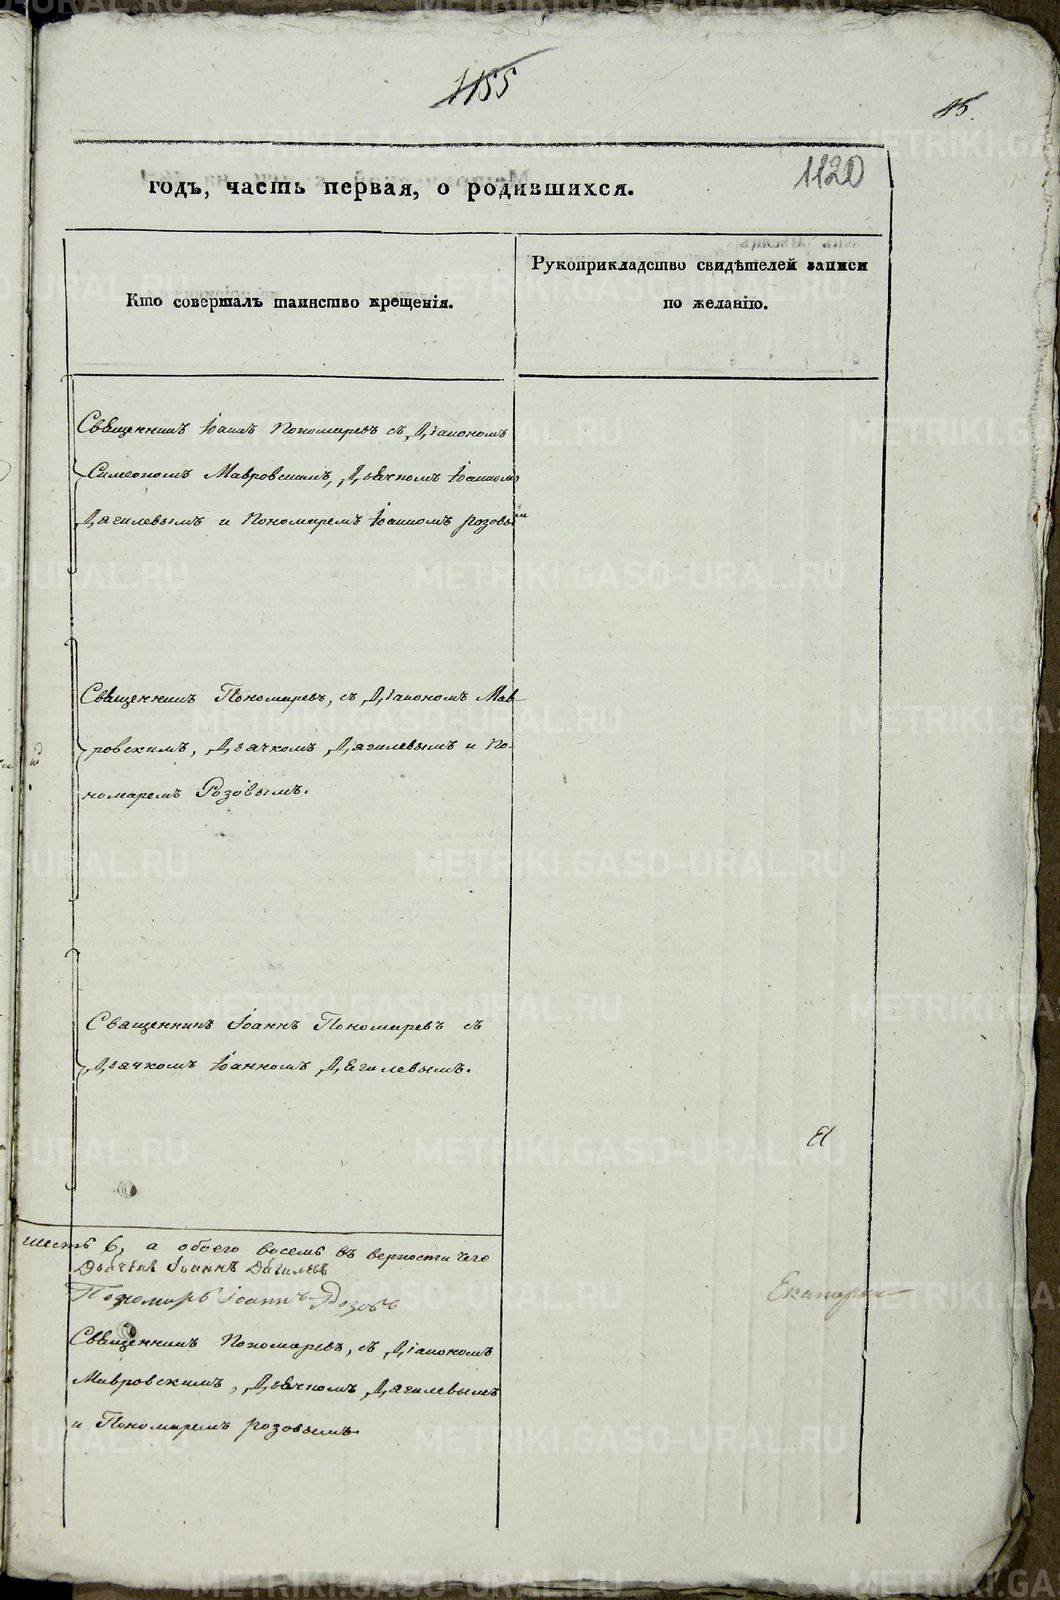 1155
15.
1120
годъ, часть первая, о родившихся.
Кто совершалъ таинство крещенія.
Рукоприкладство свидѣтелей записи
по желанію.
Священникъ Іоаннъ Пономаревъ съ Діакономъ
Симеономъ Мавровскимъ, Дьячкомъ Іоанномъ
Дягилевымъ и Пономаремъ Іоанномъ Розовымъ
Священникъ Пономаревъ, съ Діакономъ Мав-
ровскимъ, Дьячкомъ Дягилевымъ и По-
номаремъ Розовымъ.
Священникъ Іоаннъ Пономаревъ съ
Дьячкомъ Іоанномъ Дягилевымъ.
шесть 6, а обоего восемь въ верности чего
Дьячекъ Іоаннъ Дягилевъ
Пономарь Іоаннъ Розовъ
Екатерин
Священникъ Пономаревъ, съ Діакономъ
Мавровскимъ, Дьячкомъ Дягилевымъ
и Пономаремъ Розовымъ.
METRIKI.GASO-URAL.RU